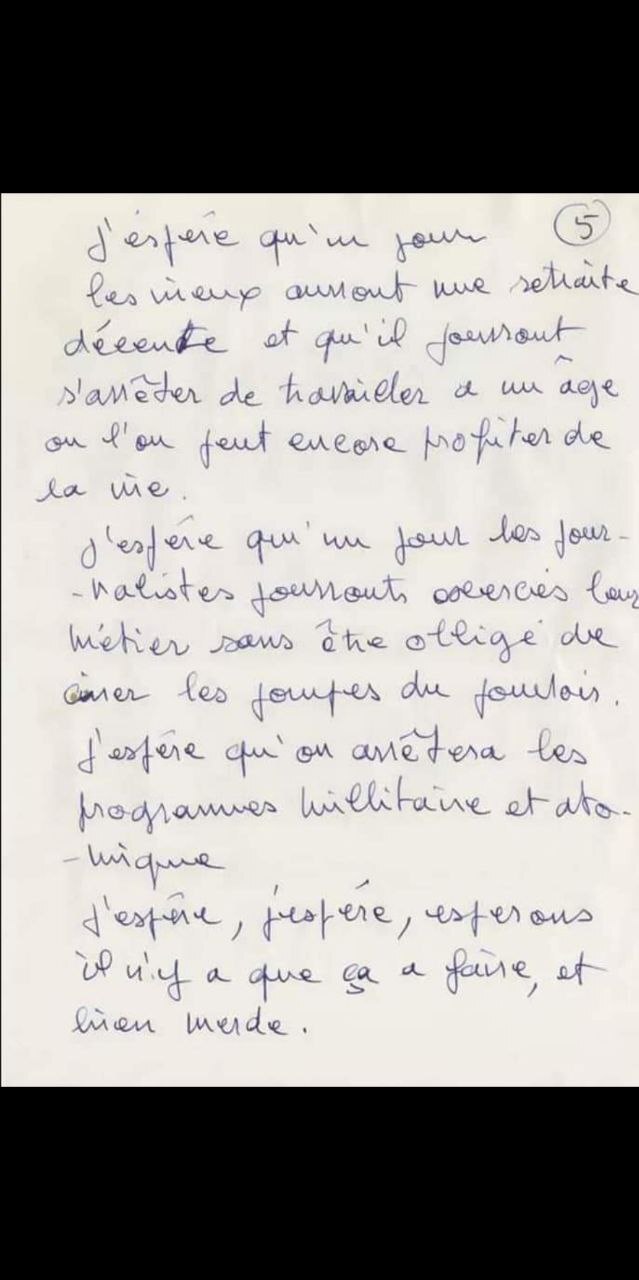 5
j'espère qu'un jour
les vieux auront une retraite
décente et qu'il pourront
s'arrêter de travailler a un âge
ou l'on peut encore profiter de
la vie.
j'espère qu'un jour les jour-
-nalistes pourronts exercés leur
métier sans être obligé de
cirer les pompes du pouvoir.
J'espère qu'on arrêtera les
programmes millitaire et ato-
-mique
J'espère, j'espére, esperons
il n'y a que ça a faire, et
bien merde.